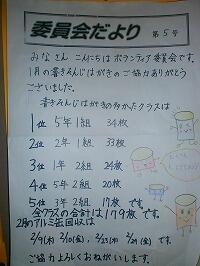 委員会だより 第5号
みなさん こんにちは ボランティア委員会です。
1月の書きそんじはがきのご協力ありがとう
ございました。
書きそんじはがきの多かったクラスは
1位 5年1組 34枚
2位 2年1組 33枚
3位 1年2組 24枚
4位 5年2組 20枚
5位 3年2組 17枚 です。
全クラスの合計は179枚です。
2月のアルミ缶回収は
2/9(木) 2/10(金)、2/23(木) 2/24(金) です。
ご協力よろしくおねがいします。